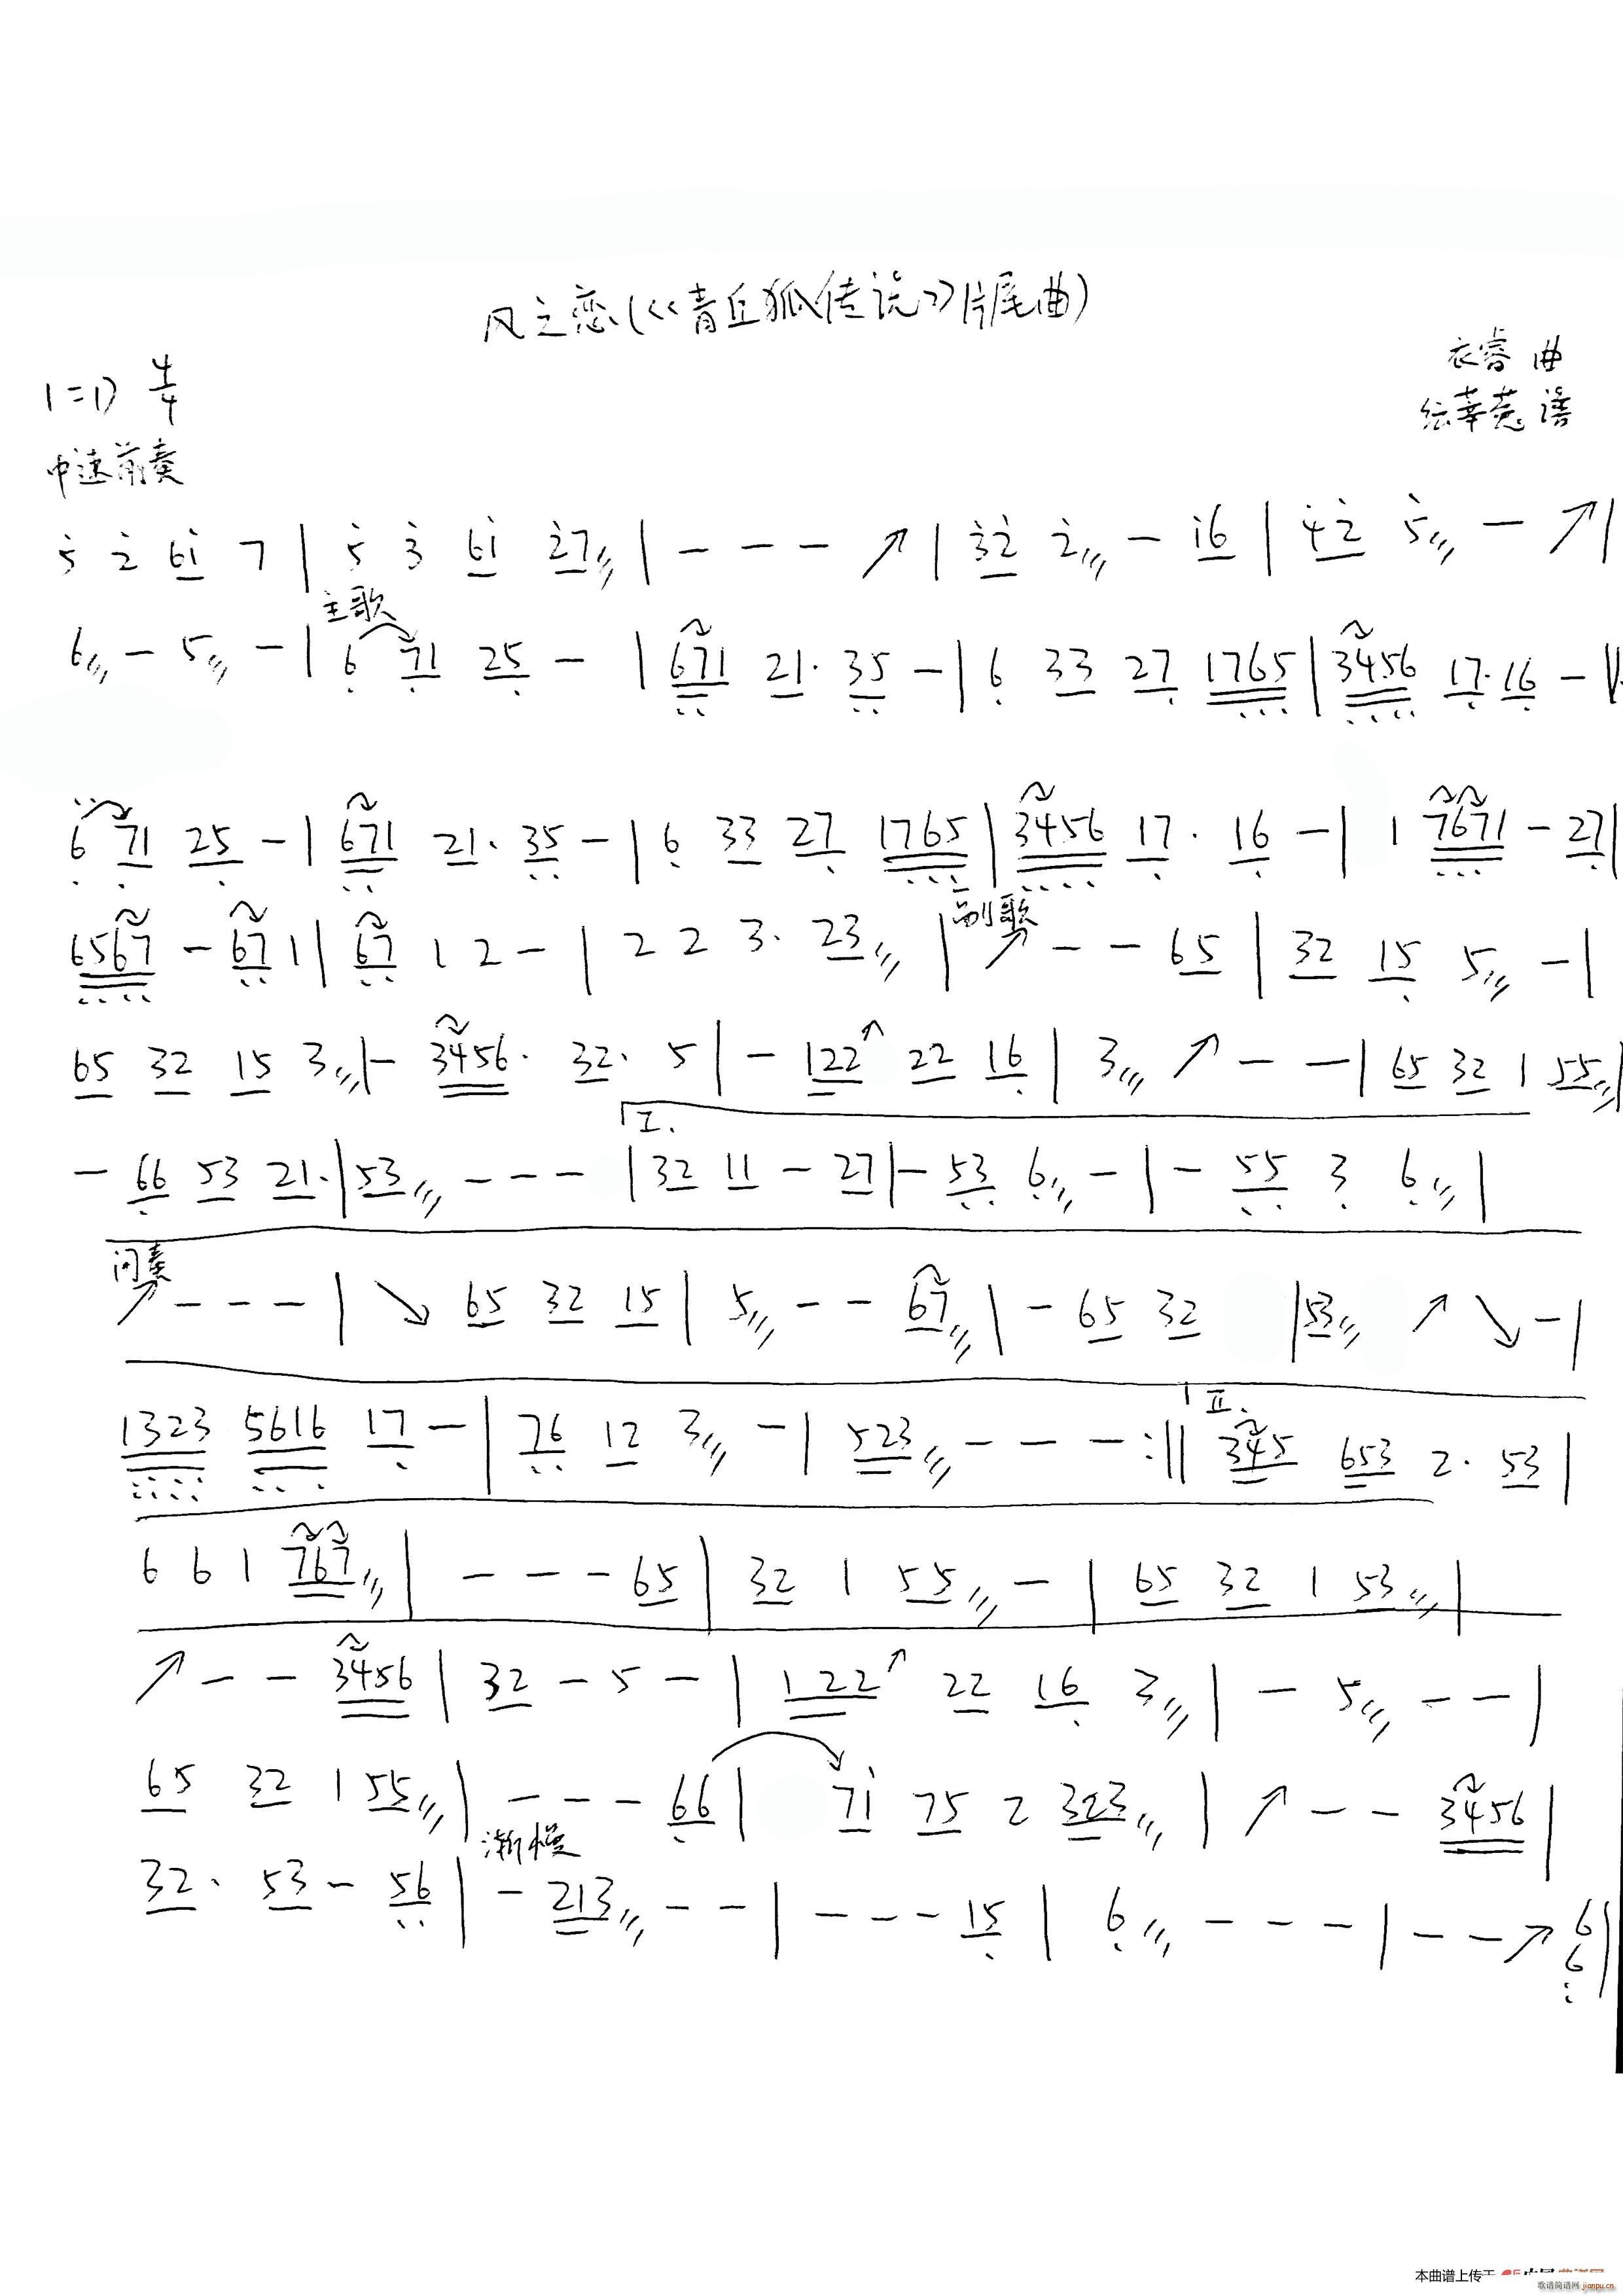 风之恋(<<青丘狐传说>>片尾曲)
衣睿 曲
1=D 4/4
谱
中速 前奏
5̇ 2̇ 6i̇ 7 | 5̇ 3̇ 6i̇ 2̇7/// | - - - ↗ | 3̇2̇ 2̇/// - i̇6 | 4̇2̇ 5̇/// - ↗ |
主歌
6/// - 5/// - | 6 71 25 - | 671 21· 35 - | 6 33 27 1765 | 3456 17·16 - ||
6 71 25 - | 671 21· 35 - | 6 33 27 1765 | 3456 17· 16 - | 1 7671 - 27 |
副歌
6567 - 67 1 | 67 1 2 - | 2 2 3· 23/// | ↗ - - 65 | 32 15 5/// - |
65 32 15 3/// | - 3456· 32· 5 | - 122↗ 22 16 | 3/// ↗ - - | 65 32 1 55/// |
I.
- 66 53 21· | 53/// - - - | 32 11 - 27 | - 53 6/// - | - 55 3 6/// |
间奏
↗ - - - | ↘ 65 32 15 | 5/// - - 67/// | - 65 32 | 53/// ↗ ↘ - |
II.
1323 5616 17 - | 76 12 3/// - | 523/// - - - :|| 345 653 2· 53 |
6 6 1 767/// | - - - 65 | 32 1 55/// - | 65 32 1 53/// |
↗ - - 3456 | 32 - 5 - | 122↗ 22 16 3/// | - 5/// - - |
65 32 1 55/// | - - - 66 | 7i̇ 75 2 323/// | ↗ - - 3456 |
渐慢
32· 53 - 56 | - 213/// - - | - - - 15 | 6/// - - - | - - ↗ 6 |
6
本曲谱上传于
歌谱简谱网 jianpu.cn